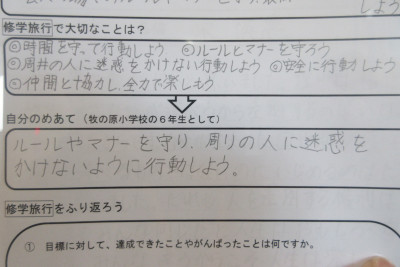 しよう
修学旅行で大切なことは？
◎時間を守って行動しよう ◎ルールとマナーを守ろう
◎周井の人に迷惑をかけない行動しよう ◎安全に行動しよう
◎仲間と協力し、全力で楽しもう
自分のめあて（牧の原小学校の６年生として）
ルールやマナーを守り、周りの人に迷惑を
かけないように行動しよう。
修学旅行をふり返ろう
① 目標に対して、達成できたことやがんばったことは何ですか。